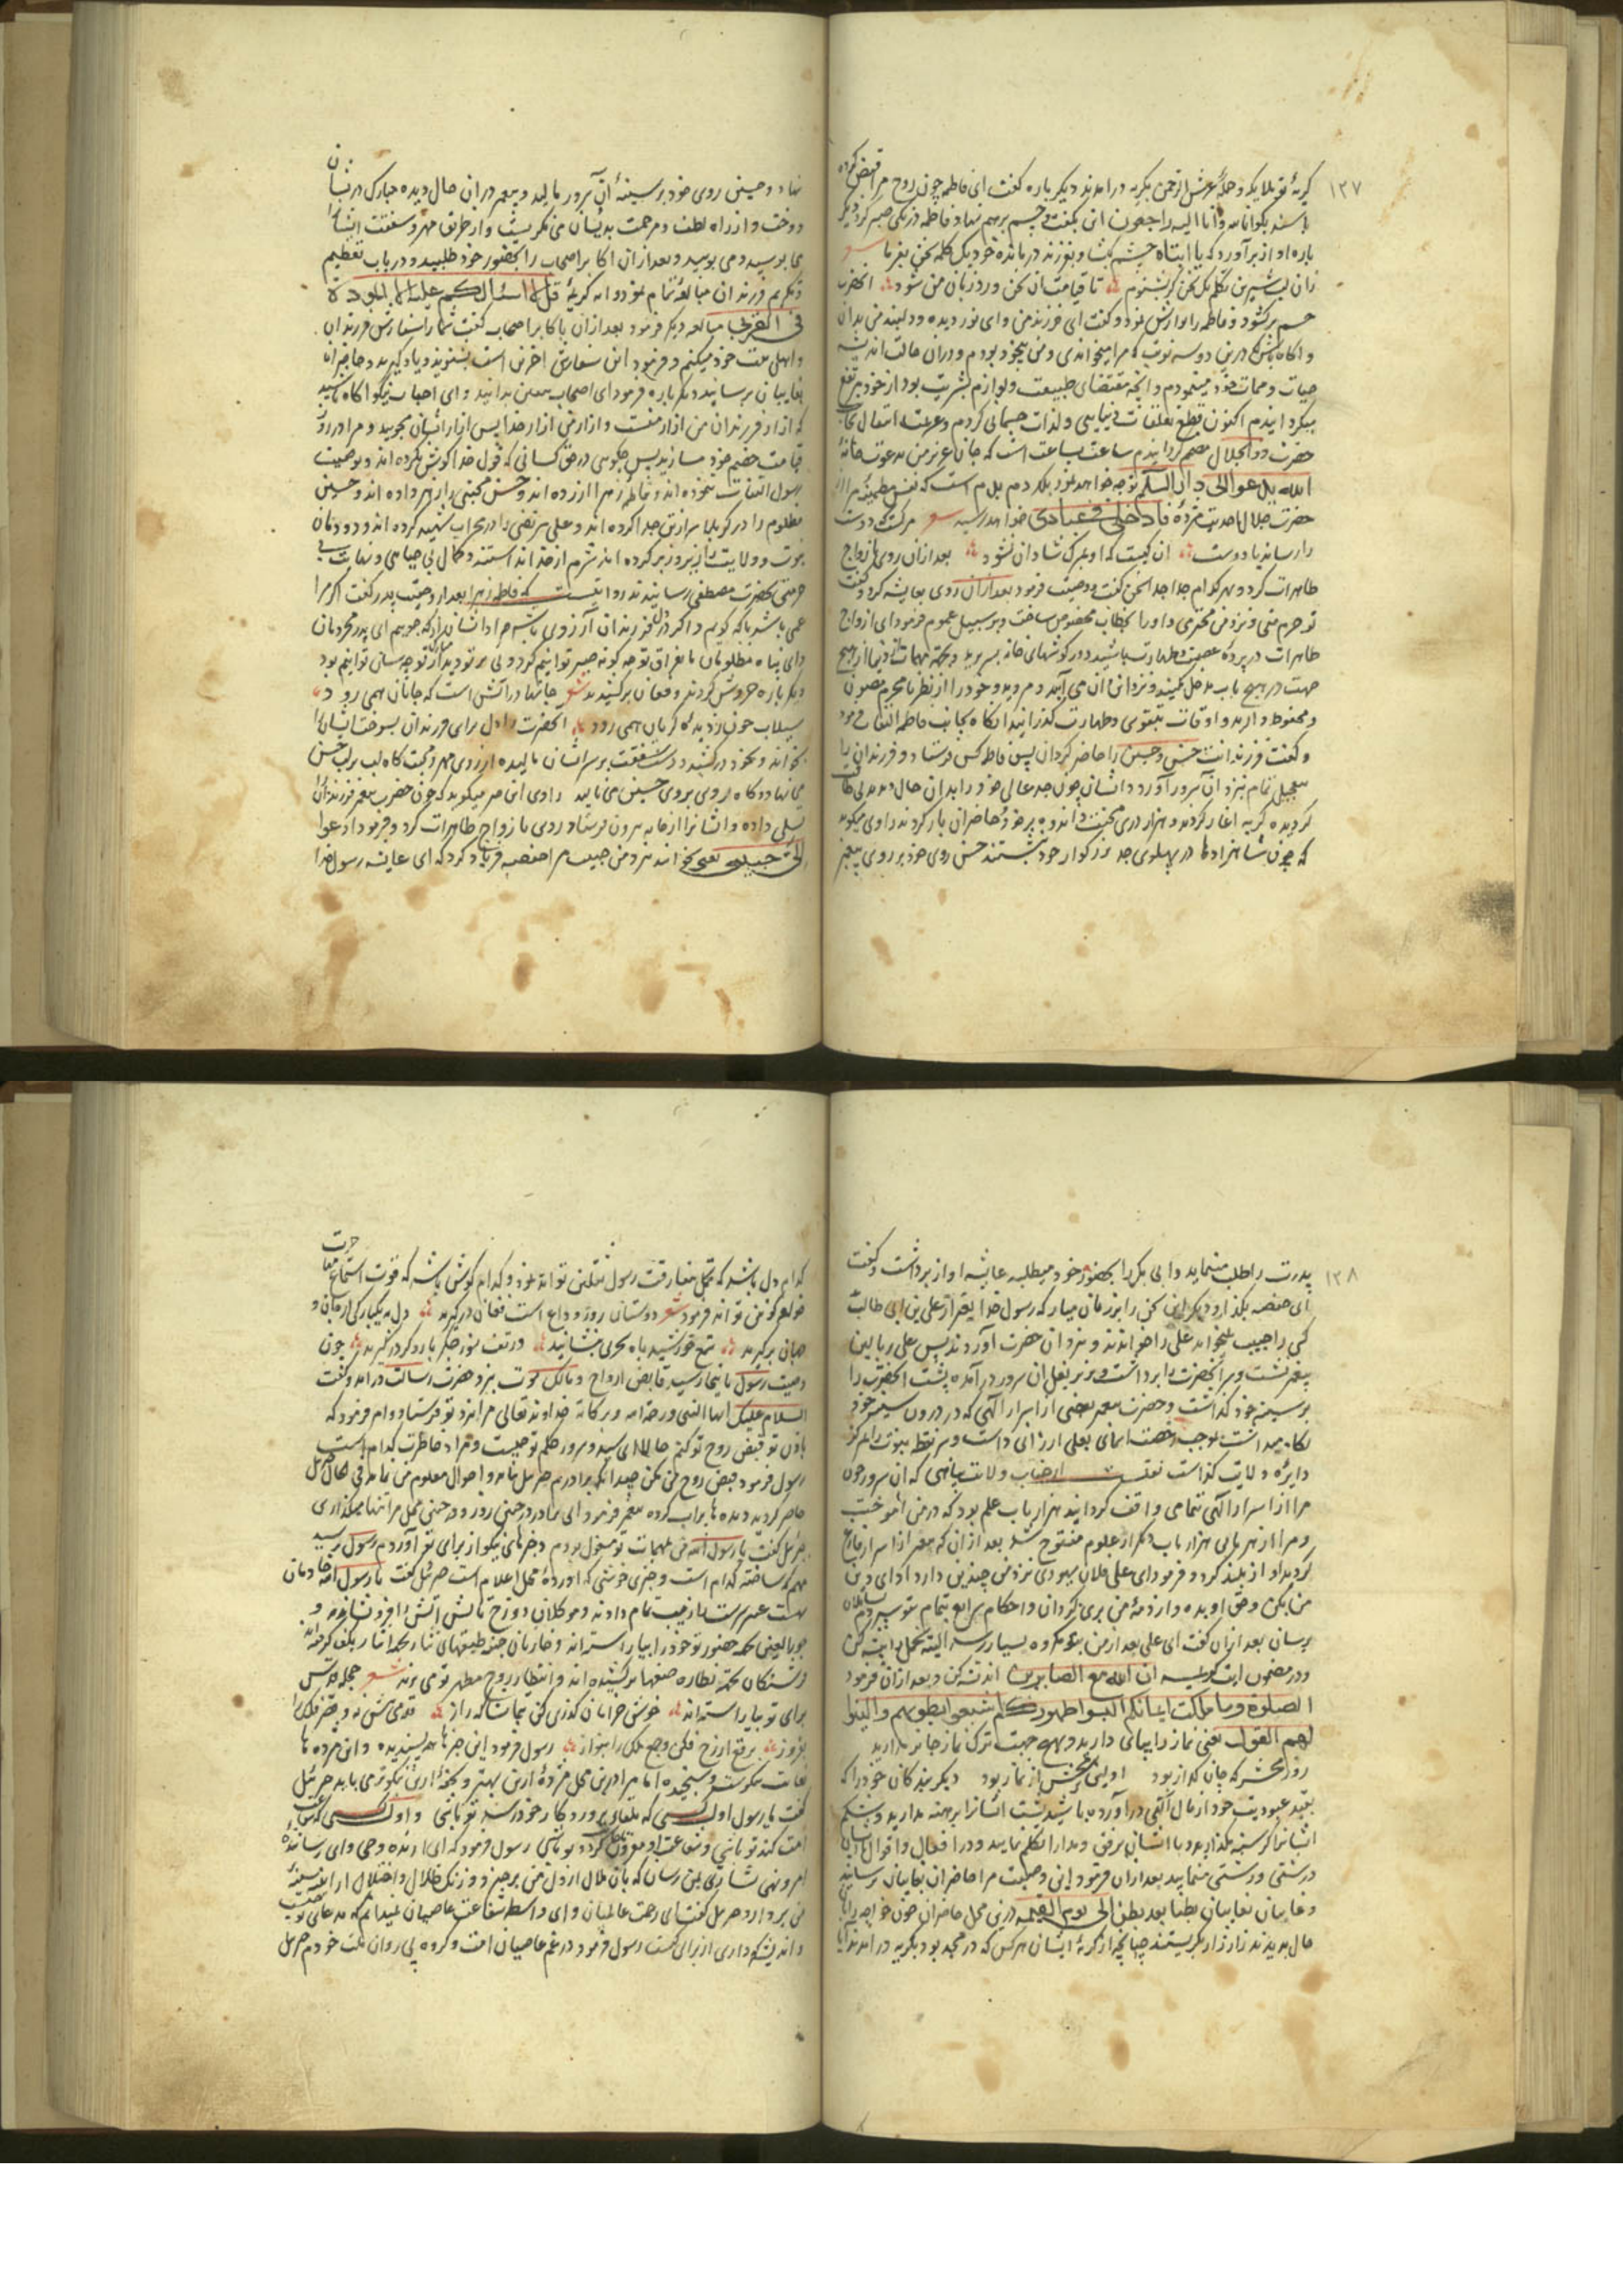 ۱۳۷
گریهٔ تو ملایکه و حملهٔ عرش الرحمن بگریه درآمدند دیگر باره گفت ای فاطمه چون روح مرا قبض کرده
باشند بگو انا لله و انا الیه راجعون این بگفت و چشم برهم نهاد و فاطمه زمانی صبر کرد دیگر
باره آواز برآورد که یا ابتاه چشم بگشا و بفرزند درمانده خود یک کلمه سخن بفرما شعر
زان لب شیرین بگو یک سخن که بشنوم تا قیامت آن سخن ورد زبان من شود آنحضرت
چشم برگشود و فاطمه را نوازش نمود و گفت ای فرزند من و ای نور دیده و دلبند من بدان
و آگاه باش که درین دو سه نوبت که مرا میخواندی و من بیخود بودم و در آن حالت اندیشه
حیات و ممات خود مینمودم و آنچه مقتضای طبیعت و لوازم بشریت بود از خود مرتفع
میگردانیدم اکنون قطع تعلقات دنیایی و لذات جسمانی کردم و عزیمت انتقال بجانب
حضرت ذو الجلال مصمم گردانیدم ساعت بساعت است که جان عزیز من بدعوت خانهٔ
الله یدعوا الی دار السلام توجه خواهد نمود بلکه دم بدم است که نفس مطمئنه مرا از
حضرت جلال احدیت مژده فادخلی فی عبادی خواهد رسید شعر مرگ دوست
را رساند با دوست آن کیست که او بمرگ شادان نشود بعد از آن روی بازواج
طاهرات کرد و بهر کدام جدا جدا سخن گفت و وصیت فرمود بعد از آن روی بعایشه کرد و گفت
تو حرم منی و نزد من محترمی و او را بخطاب مخصوص ساخت و بر سبیل عموم فرمود ای ازواج
طاهرات در پرده عصمت و طهارت باشید و در گوشهای خانه بسر برید و بجهت مهمات دنیا از هیچ
جهت در هیچ باب مدخل مکنید و نزد این و آن می آیید و مروید و خود را از نظر نامحرم مصون
و محفوظ دارید و اوقات بتقوی و طهارت گذرانید آنگاه بجانب فاطمه التفات فرمود
و گفت فرزندانت حسن و حسین را حاضر گردان پس فاطمه کس فرستاد و فرزندان را
بتعجیل تمام بنزد آن سرور آورد و ایشان چون جد عالی خود را بدان حال دیدند بی طاقت
گردیده گریه آغاز کردند و هزار در محنت و اندوه بر خود و حاضران باز کردند راوی میگوید
که چون شاهزادها در پهلوی جد بزرگوار خود نشستند حسن روی خود بر روی پیغمبر
نهاد و حسین روی خود بر سینهٔ آن سرور مالید و پیغمبر در آن حال دیده مبارک در ایشان
دوخت و از راه لطف و مرحمت بدیشان می نگریست و از طریق مهر و شفقت ایشانرا
می بوسید و می بویید و بعد از آن اکابر اصحاب را بحضور خود طلبید و در باب تعظیم
و تکریم فرزندان مبالغهٔ تمام نمود و آیه کریمهٔ قل لا اسئلکم علیه الا المودة
فی القربی مبالغه دیگر فرمود بعد از آن با اکابر اصحاب گفت شما را سفارش فرزندان
و اهل بیت خود میکنم و فرمود این سفارش آخرین است بشنوید و یاد گیرید و حاضران
بغایبان برسانند دیگر باره فرمود ای اصحاب یقین بدانید و ای احباب نیکو آگاه باشید
که آزار فرزندان من آزار منست و آزار من آزار خدا پس از آزار ایشان مجویید و مرا در روز
قیامت خصم خود مسازید پس چگویی در حق کسانی که قول خدا گوش نکرده اند و بوصیت
رسول التفات ننموده اند و فاطمه زهرا آزرده اند و حسن مجتبی را زهر داده اند و حسین
مظلوم را در کربلا سر از تن جدا کرده اند و علی مرتضی را در محراب شهید کرده اند و دودمان
نبوت و ولایت را زیر و زبر کرده اند شرم از خدا نداشتند و کمال بی حیایی و نهایت بی
حرمتی بحضرت مصطفی رسانیدند روایتست که فاطمه زهرا بعد از وصیت پدر گفت اگر مرا
غمی باشد با که گویم و اگر در دل فرزندان آرزوی باشد مراد ایشان از که جویم ای پدر محرومان
و ای پناه مظلومان ما بفراق تو چگونه صبر توانیم کرد و بی مرتو دیدار تو چه سان توانیم بود
دیگر باره خروش کردند و فغان برکشیدند شعر جانها در آتش است که جانان همی رود
سیلاب خون ز دیده گریان همی رود آنحضرت را دل برای فرزندان بسوخت ایشانرا
بخواند و بخود درکشید و دست شفقت بر سر ایشان مالیده از روی مهر و محبت گاه لب بر لب حسن
می نهاد و گاه روی بروی حسین می مالید راوی این خبر میگوید که چون حضرت پیغمبر فرزندانرا
تسلی داده و ایشانرا از خانه بیرون فرستاد روی با زواج طاهرات کرد و فرمود ادعوا
الی حبیبی یعنی بخوانید نزد من حبیب مرا حفصه فریاد کرد که ای عایشه رسول خدا
۱۳۸
پدرت را طلب مینماید و ابی بکر را بحضور خود میطلبد عایشه آواز برداشت و گفت
ای حفصه بگذار و دیگر این سخن را بر زبان میار که رسول خدا بغیر از علی بن ابی طالب
کسی را حبیب نمیخواند علی را خواندند و نزد آن حضرت آوردند پس علی بر بالین
پیغمبر نشست و سر آنحضرت را برداشت و در زیر بغل آن سرور درآمده پشت آنحضرت را
بر سینه خود گذاشت و حضرت پیغمبر بعضی از اسرار الهی که در درون سینه خود
نگاه میداشت بعلی ارزانی داشت و سر نقطه نبوت را بمرکز
دایره ولایت گذاشت نقلست از جناب ولایت پناهی که آن سرور چون
مرا از اسرار الهی بتمامی واقف گردانید هزار باب علم بود که در من آموخت
و مرا از هر بابی هزار باب دیگر از علوم مفتوح شد بعد از آن که پیغمبر از اسرار فارغ
گردید آواز بلند کرد و فرمود ای علی فلان یهودی نزد من چندین دارد ادای دین
من بکن و حق او بده و از ذمهٔ من بری گردان و احکام شرایع بتمام بتو سپردم
برسان بعد از آن گفت ای علی بعد از من بتو مکروه بسیار رسد البته تحمل و
و در مضمون آیت کریمه ان الله مع الصابرین اندیشه کن و بعد از آن فرمود
الصلوة و ما ملکت ایمانکم البسوا ظهورکم اشبعوا بطونهم و الینوا
لهم القول یعنی نماز را بپای دارید و بهیچ جهت ترک نماز جایز مدارید
روز محشر که جان گداز بود اولین پرسش از نماز بود دیگر بندگان خود را که
بقید عبودیت خود از مال آلهی درآورده باشید پشت ایشانرا برهنه مدارید و شکم
ایشانرا گرسنه مگذارید و با ایشان برفق و مدارا تکلم نمایید و در افعال و اقوال با ایشان
درشتی و زشتی منمایید بعد از آن فرمود این وصیت مرا حاضران بغایبان رسانید
و غایبان بغایبان بطنا بعد بطن الی یوم القیمه درین محل حاضران چون خواجه را بآن
حال بدیدند زار زار بگریستند چنانچه از گریهٔ ایشان هر کس که در مسجد بود بگریه درآمدند آیا
کدام دل باشد که تحمل مفارقت رسول ثقلین تواند نمود و کدام گوش باشد که قوت استماع
تواند فرمود شعر دوستان روز وداع است فغان درگیرید دل بیکبارگی از جان و
جهان برگیرید شمع خورشید بآه سحری بنشانید وز تف سوز جگر بار دگر درگیرید چون
وصیت رسول باینجا رسید قابض ارواح و مالک موت بنزد حضرت رسالت درآمد و گفت
السلام علیک ایها النبی و رحمة الله و برکاته خداوند تعالی مرا نزد تو فرستاد و امر فرمود که
باذن تو قبض روح تو کنم حالا ای سید و سرور حکم تو چیست و مراد خاطرت کدام است
رسول فرمود قبض روح من مکن چندانکه برادرم جبرئیل بیاید و احوال معلوم من نماید فی الحال جبرئیل
حاضر گردید پیغمبر فرمود ای برادر در چنین روز و در چنین محل مرا تنها میگذاری
جبرئیل گفت یا رسول الله من بمهمات تو مشغول بودم و خبرهای نیکو از برای تو آوردم رسول پرسید
مهم ساخته کدام است و خبر خوشی که آوردهٔ محل اعلام است جبرئیل گفت یا رسول الله خادمان
بهشت عنبر سرشت را زینت تمام دادند و موکلان دوزخ مالش آتش را فرو نشاندند و
حوریان لعیا بجهت حضور تو خود را بیاراسته اند و خازنان جنت طبقهای نثار بجهت ایثار بکف گرفته اند
فرشتگان بجهت نظاره صفها برکشیده اند و انتظار روح مطهر تو می برند شعر جمله فردوس
برای تو بیاراسته اند خوش خرامان گذری کن بچمن
بفروز برقع از رخ فکن رسول فرمود این خبرها همه پسندیده و این مژده ها
بغایت نیکوست و سنجیده اما مرا درین محل مژدهٔ ازین بهتر و تحفهٔ ازین نیکوتر می باید جبرئیل
گفت یا رسول اول کسی که بلقای پروردگار خود رسد تو باشی و اول کسی که شفاعت
امت کند تو باشی و شفاعت او مقرون بقبول گردد تو باشی رسول فرمود که ای آرنده وحی و ای رساننده
امر و نهی بشارتی بمن رسان که بآن ملال از دل من برخیزد و زنگ ظلال و اختلال از آینهٔ سینهٔ
من بردارد جبرئیل گفت ای رحمت عالمیان و ای واسطه شفاعت عاصیان نمیدانم که مدعای تو چیست
و اندیشه که داری از برای کیست رسول فرمود در غم عاصیان امت و گروه بی روان ملت خودم جبرئیل